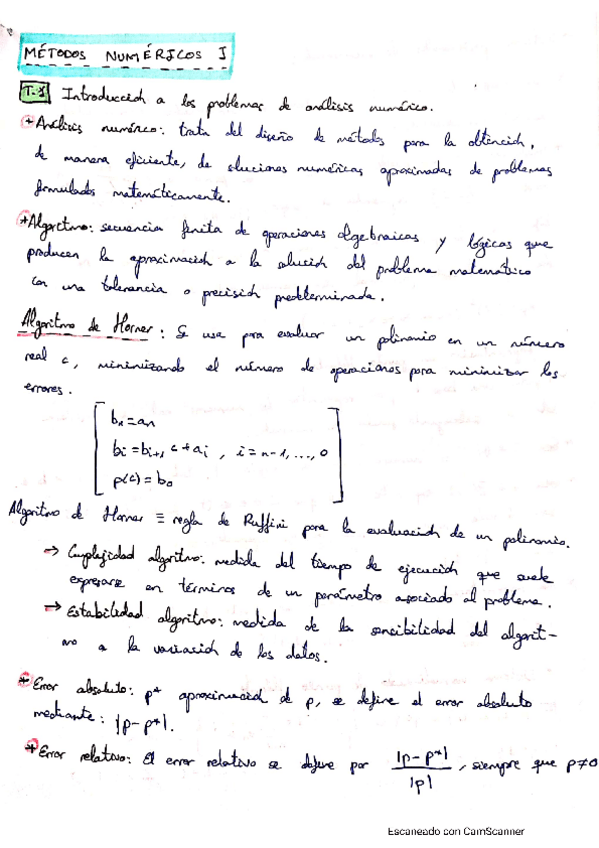 MÉTODOS NUMÉRICOS I
T.1 Introducción a los problemas de análisis numérico.
* Análisis numérico: trata del diseño de métodos para la obtención,
de manera eficiente, de soluciones numéricas aproximadas de problemas
formulados matemáticamente.
* Algoritmo: secuencia finita de operaciones algebraicas y lógicas que
producen la aproximación a la solución del problema matemático
con una tolerancia o precisión predeterminada.
Algoritmo de Horner: Se usa para evaluar un polinomio en un número
real c, minimizando el número de operaciones para minimizar los
errores.
bn = an
bi = bi+1 c + ai , i = n-1, ..., 0
p(c) = b0
Algoritmo de Horner ≡ regla de Ruffini para la evaluación de un polinomio.
→ Complejidad algoritmo: medida del tiempo de ejecución que suele
expresarse en términos de un parámetro asociado al problema.
→ Estabilidad algoritmo: medida de la sensibilidad del algorit-
mo a la variación de los datos.
* Error absoluto: p* aproximación de p, se define el error absoluto
mediante: |p - p*|.
* Error relativo: El error relativo se define por |p - p*| / |p| , siempre que p≠0
Escaneado con CamScanner